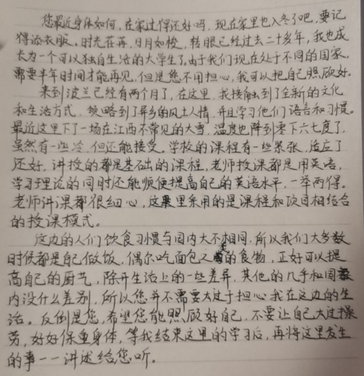 您最近身体如何，在家过得还好吗，现在家里也入冬了吧，要记
得添衣服。时光荏苒，日月如梭，转眼已经过去二十多年，我也成
长为一个可以独自生活的大学生了，由于我们现在处于不同的国家，
需要半年时间才能再见，但是您不用担心，我可以把自己照顾好。
来到波兰已经有两个月了，在这里，我接触到了全新的文化
和生活方式，领略到了异乡的风土人情，并且学习他们语言和习惯。
最近这里下了一场在江西不常见的大雪，温度也降到零下六七度了，
虽然有一些冷，但还能接受。学校的课程有一些紧张，适应了
还好，讲授的都是基础的课程，老师授课都是用英语，
学习理论的同时还能顺便提高自己的英语水平，一举两得。
老师讲课都很细心，这里采用的是课程和项目相结合
的授课模式。
这边的人们饮食习惯与国内大不相同，所以我们大多数
时候都是自己做饭，偶尔吃面包之类的食物，正好可以提
高自己的厨艺，除开生活上的一些差异，其他的几乎和国
内没什么差别，所以您并不需要太过于担心我在这边的生
活。反倒是您，希望您能照顾好自己，不要让自己太过操
劳，好好保重身体，等我结束这里的学习后，再将这里发生
的事一一讲述给您听。